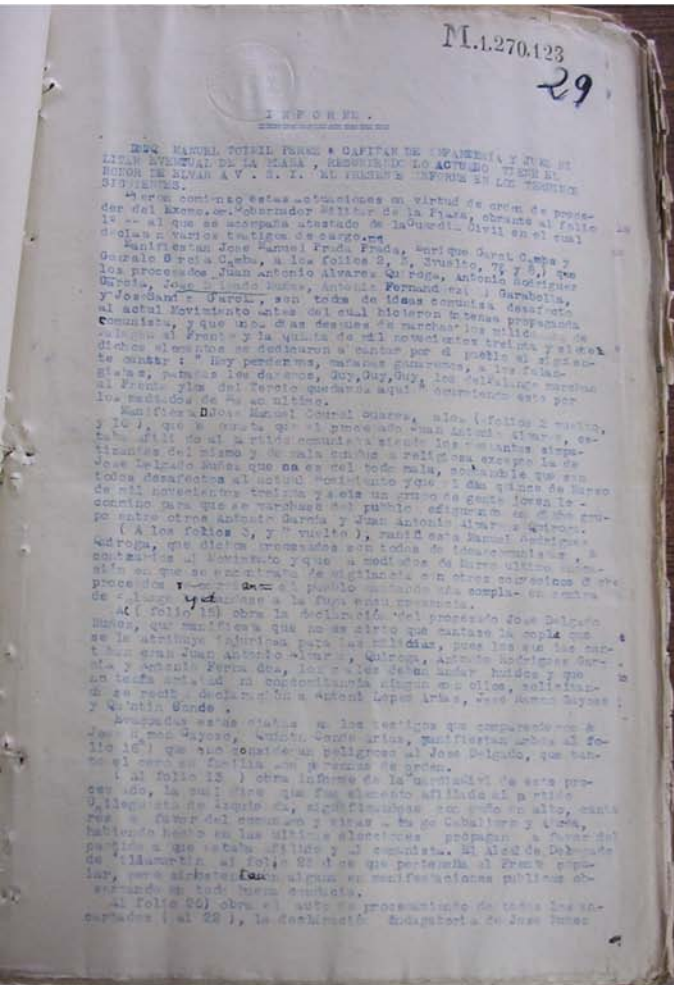 M.1.270.123
29
INFORME.
DON MANUEL PEREZ CAPITAN DE INFANTERIA Y JUEZ MI
LITAR EVENTUAL DE LA PLAZA, LO ACTUADO TIENE EL
HONOR DE ELVAR A V. S. I. EL PRESENTE INFORME EN LOS TERMINOS
SIGUIENTES.
comienzo estas actuaciones en virtud de orden de proce-
der del Excmo. Gobernador Militar de la Plaza, obrante al folio
al que se acompaña atestado de la Guardia Civil en el cual
declaran varios testigos de cargo.
Manifiestan Jose Manuel Prada Prada, Camba y
Gonzalo Camba, a los folios 2, 3, 3vuelto, que
los procesados Juan Antonio Alvarez Quiroga, Antonio Rodriguez
Garcia, Jose Delgado Nuñez, Antonio Fernandez Garabolla,
y Jose son todos de ideas comunista desafecto
al actual Movimiento antes del cual hicieron intensa propaganda
comunista, y que unos dias despues de marchar los milicianos de
Falange al Frente y la quinta de mil novecientos treinta y
dichos elementos se dedicaron a cantar por el pueblo el siguien-
te cantar: " Hoy perdemos, mañana ganaremos, a los falan-
gistas, patadas les daremos, Guy,Guy,Guy, los de Falange marchan
al Frente y los del Tercio quedamos aquí " ocurriendo esto por
los mediados de ultimo.
Manifiesta D Jose Manuel (folios 2 vuelto,
que el procesado Juan Antonio Alvarez, es-
al partido comunista siendo los restantes simpa-
tizantes del mismo y de mala conducta religiosa excepto la de
Jose Delgado Nuñez que no es del todo mala, que son
todos desafectos al actual Movimiento y que dia quince de Marzo
de mil novecientos treinta y seis un grupo de gente joven le
para que se marchase del pueblo figurando en dicho gru-
po entre otros Antonio Garcia y Juan Antonio Alvarez Quiroga.
( A los folios 3, y " vuelto ), manifiesta Manuel Rodrigue
Quiroga, que dichos procesados son todos de ideas comunistas,
contrarios al Movimiento y que a mediados de Marzo ultimo
en que se encontraba de vigilancia con otros convecinos
procesados el pueblo cantando una copla en contra
de Falange y dandose a la fuga en su presencia.
A( folio 15) obra la declaración del procesado Jose Delgado
Nuñez, que manifiesta que no es cierto que cantase la copla que
se le atribuye injuriosa para las milicias, pues los que las can-
taban eran Juan Antonio Alvarez, Quiroga, Antonio Rodriguez Gar-
cia y Antonio los cuales deben andar huidos y que
no tenía amistad ni concomitancia ninguna con ellos, solicitan-
se reciba declaración a Antoni Lopez Arias, José Ramon Gayoso
y Quintin Conde.
Evacuadas estas citas en los testigos que comparecieron
Jose Ramon Gayoso, Quintin Conde Arias, manifiestan ambos al fo-
lio 16 ) que que consideran peligroso al Jose Delgado, que tan-
to el como su familia son personas de orden.
( Al folio 13 ) obra informe de la Guardia Civil de este pro-
cesado, la cual dice que fue elemento afiliado al partido
Galleguista de izquierda, significandose con puño en alto, canta
res a favor del comunismo y vivas a Largo Caballero y
habiendo hecho en las ultimas elecciones propagan a favor del
partido a que estaba afilido y al comunista. El Alcalde Delegado
de Villamartin al folio 25 dice que pertenecia al Frente popu-
lar, alguna en manifestaciones publicas ob-
servando en todo buena conducta.
Al folio 20) obra el auto de procesamiento de todos los en-
cartados ( al 22 ), la declaración indagatoria de Jose Nuñez